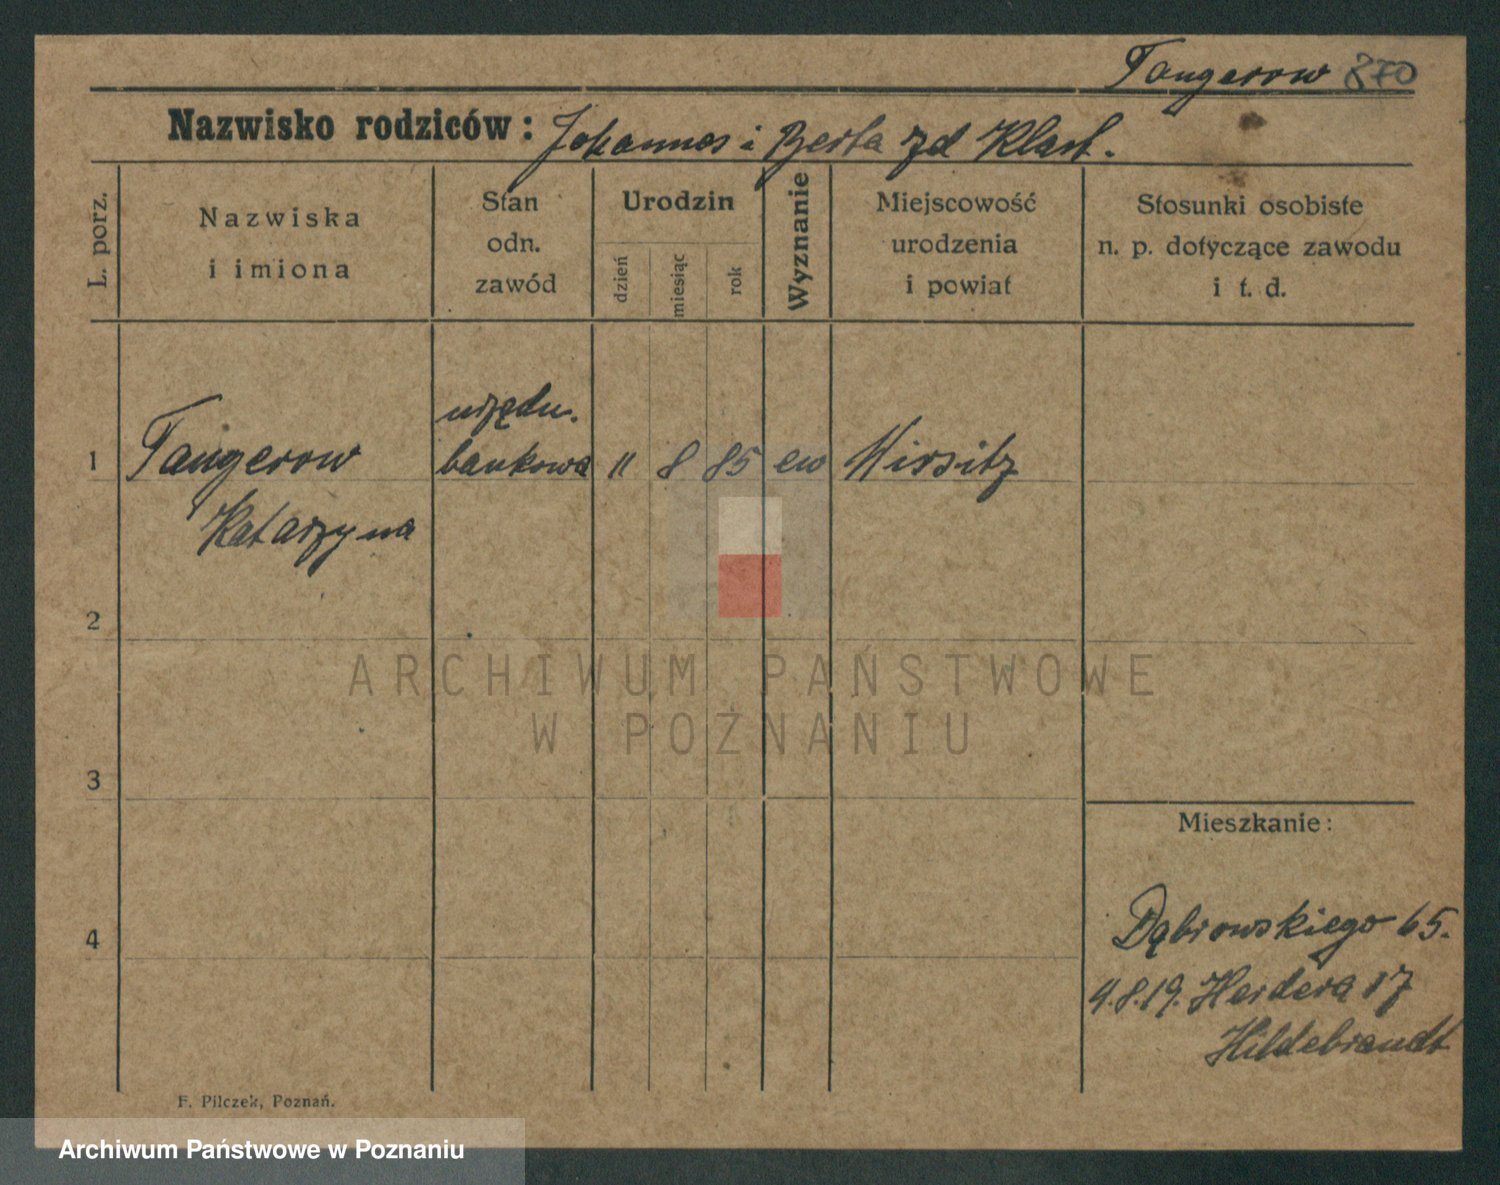 Tangerow 870
Nazwisko rodziców: Johannes i Berta zd Klast.
L. porz.
Nazwiska
i imiona
Stan
odn.
zawód
Urodzin
dzień
miesiąc
rok
Wyznanie
Miejscowość
urodzenia
i powiat
Stosunki osobiste
n. p. dotyczące zawodu
i t. d.
1 Tangerow
Katarzyna
urzędn.
bankowa
11 8 85 ew Wirsitz
2
3
4
ARCHIWUM PAŃSTWOWE
W POZNANIU
Mieszkanie:
Dąbrowskiego 65.
4.8.19. Herdera 17
Hildebrandt
F. Pilczek, Poznań.
Archiwum Państwowe w Poznaniu